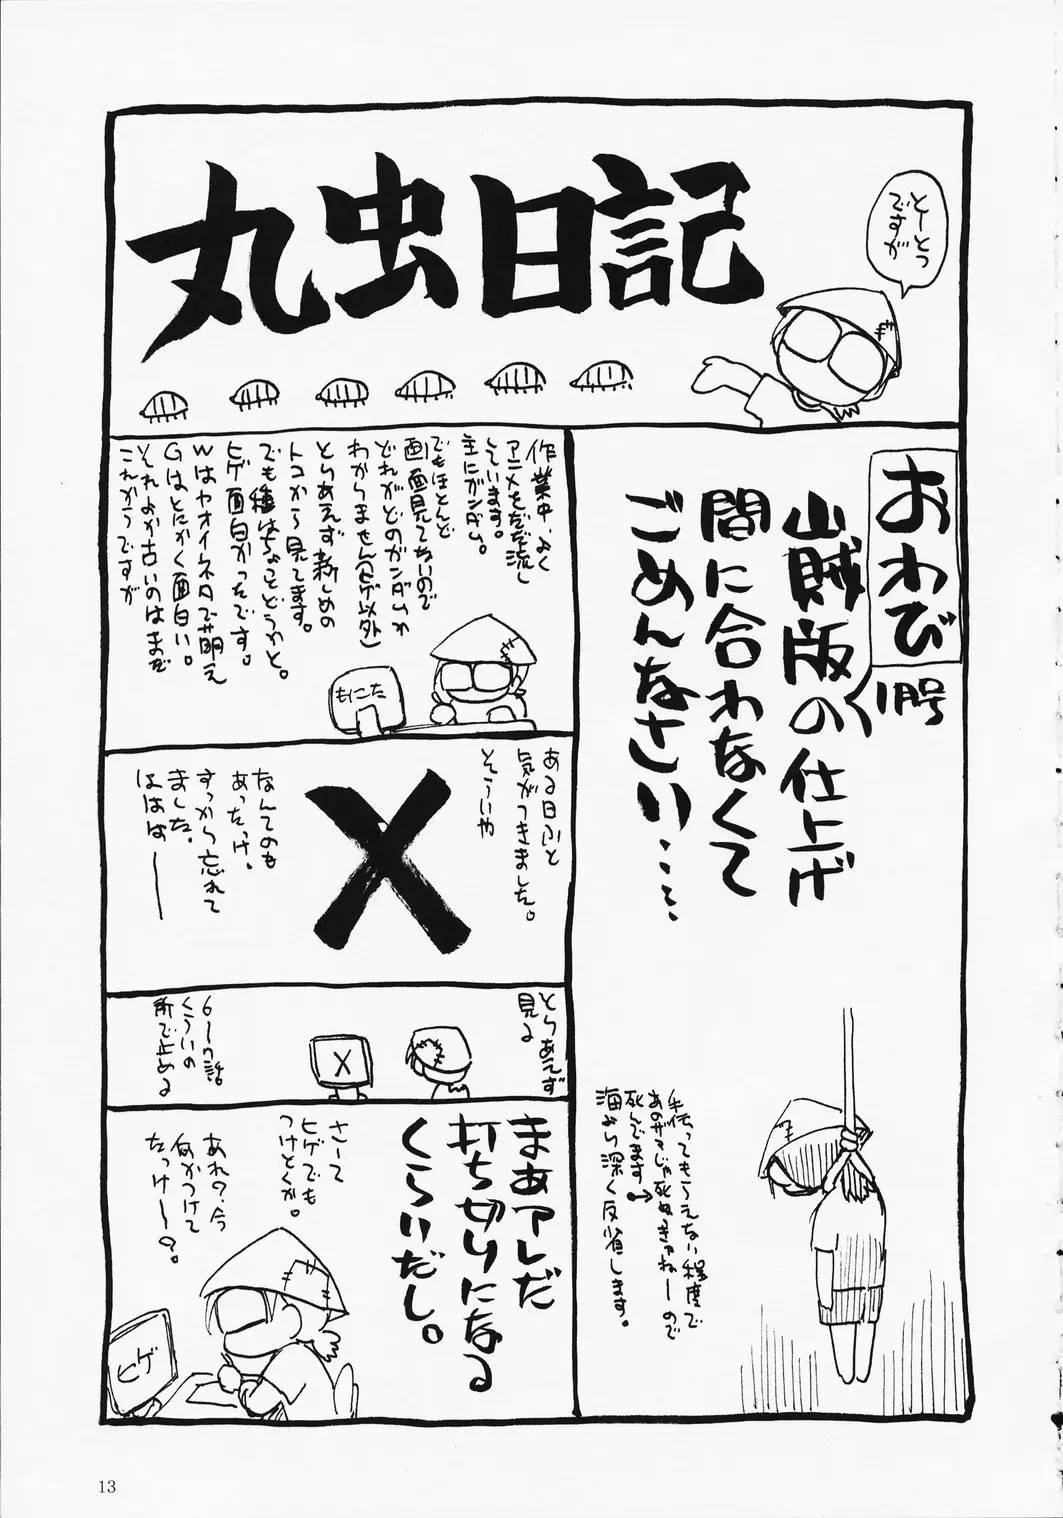 丸虫日記
とーとつ
ですが
おわび
1号
山賊版の仕上げ
間に合わなくて
ごめんなさい……
手伝ってもらえない程度で
死んでます
海より深く反省します。
作業中、よく
アニメをだだ流し
しています。
主にガンダム。
でもほとんど
画面見てないので
どれがどのガンダムか
わかりません(ヒゲ以外)
とりあえず新しめの
トコから見てます。
でも種はちょっとどうかと。
ヒゲ面白かったです。
Wはヤオイネタで萌え
Gはとにかく面白い。
それよか古いのはまだ
これからですが
もにた
ある日ふと
気がつきました。
そういや
X
なんてのも
あったっけ、
すっかり忘れて
ました。
ははは――
とりあえず
見る
X
6〜7話
くらいの
所で止める
まあアレだ
打ち切りになる
くらいだし。
さーて
ヒゲでも
つけとくか。
あれ?今
何かつけて
たっけ〜?。
ヒゲ
13